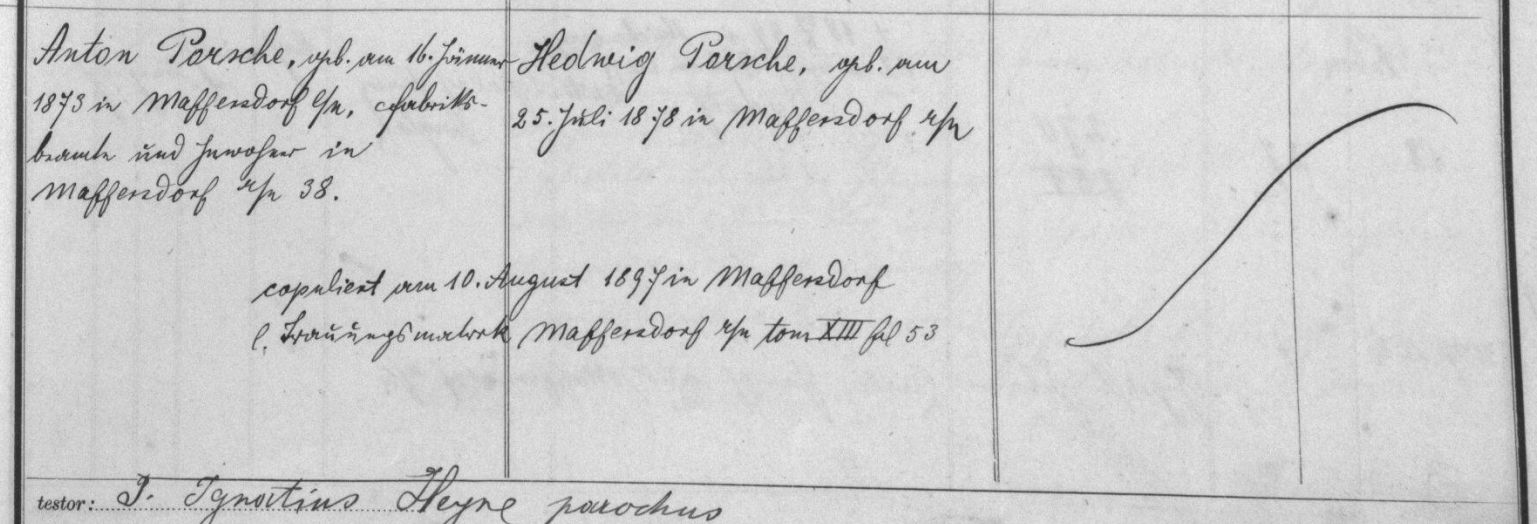 Anton Porsche, geb. am 16. Jänner
1873 in Maffersdorf l/n, Fabriks-
beamte und Inwohner in
Maffersdorf r/n 38.
Hedwig Porsche, geb. am
25. Juli 1878 in Maffersdorf r/n
copuliert am 10. August 1897 in Maffersdorf
l. Trauungsmatrik Maffersdorf r/n tom XIII fol 53
testor: P. Ignatius Heyne parochus